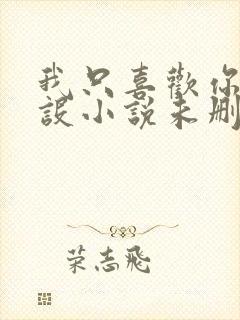 我只喜歡你
設小說未刪
荣志飛